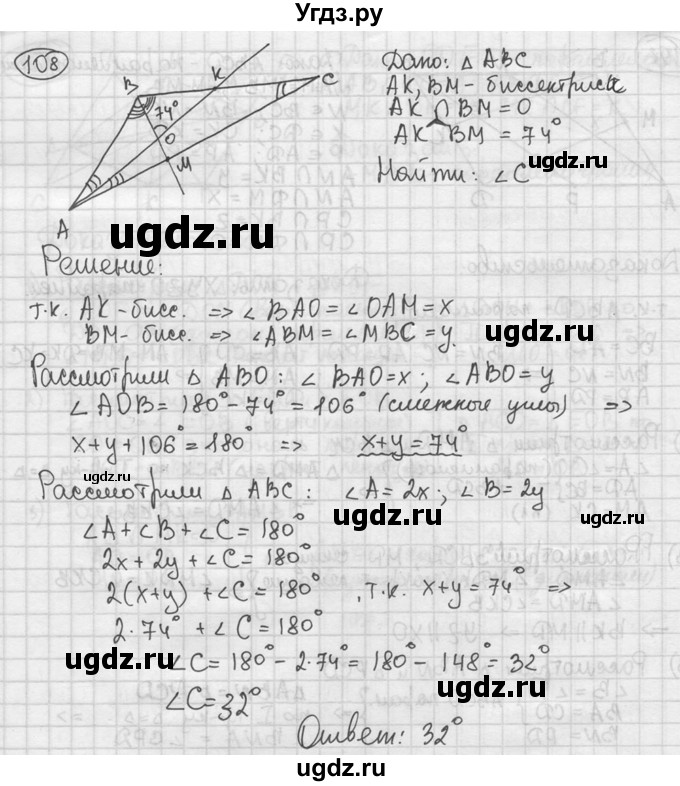 Угдз.ру
108
B
K
C
74°
O
M
A
Дано: △ ABC
AK, BM - биссектрисы
AK ∩ BM = O
AK ^ BM = 74°
Найти: ∠C
ugdz.ru
ugdz.ru
Решение:
т.к. AK - бисс. => ∠BAO = ∠OAM = x
BM - бисс. => ∠ABM = ∠MBC = y.
ugdz.ru
Рассмотрим △ ABO: ∠ BAO = x; ∠ABO = y
∠AOB = 180° - 74° = 106° (смежные углы) =>
x + y + 106° = 180° => x + y = 74°
ugdz.ru
Рассмотрим △ ABC: ∠A = 2x; ∠B = 2y
∠A + ∠B + ∠C = 180°
ugdz.ru
2x + 2y + ∠C = 180°
2(x+y) + ∠C = 180°, т.к. x + y = 74° =>
2·74° + ∠C = 180°
ugdz.ru
∠C = 180° - 2·74° = 180° - 148° = 32°
∠C = 32°
ugdz.ru
Ответ: 32°
ugdz.ru
ugdz.ru